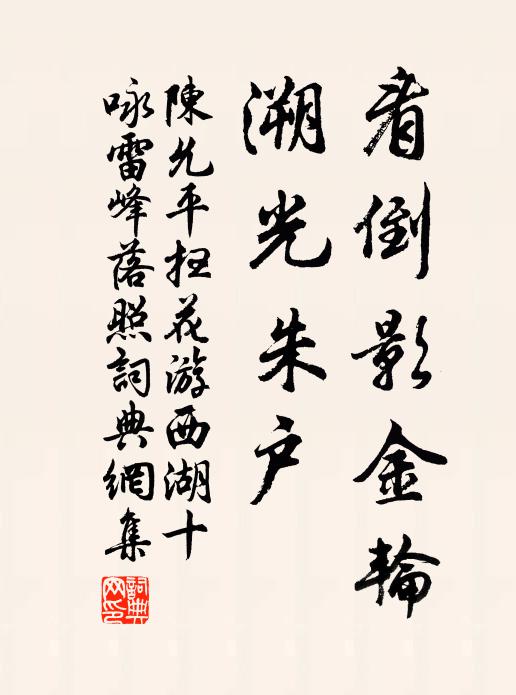 看倒影金輪
溯光朱户
陳允平扫花游西湖十
咏雷峰落照詞典網集
詞典網印